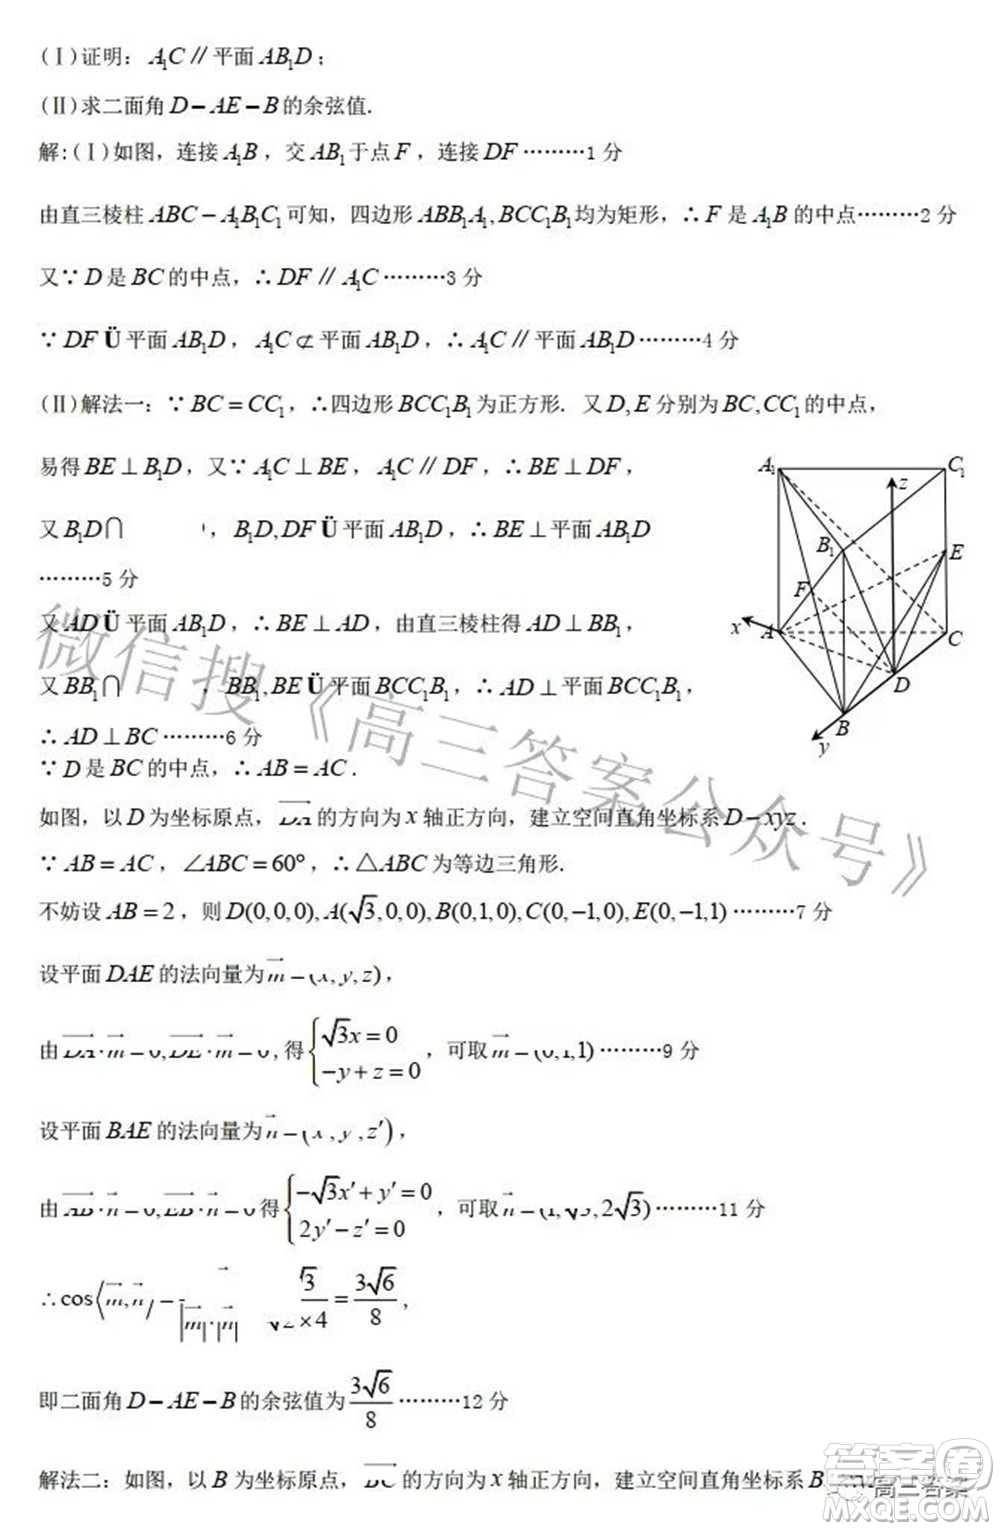 (Ⅰ)证明：A₁C∥平面AB₁D；
(Ⅱ)求二面角D−AE−B的余弦值.
解:(Ⅰ)如图，连接A₁B，交AB₁于点F，连接DF………1分
由直三棱柱ABC−A₁B₁C₁可知，四边形ABB₁A₁,BCC₁B₁均为矩形，∴F是A₁B的中点………2分
又∵D是BC的中点，∴DF∥A₁C………3分
∵DF Ü平面AB₁D，A₁C⊄平面AB₁D，∴A₁C∥平面AB₁D………4分
(Ⅱ)解法一：∵BC=CC₁，∴四边形BCC₁B₁为正方形. 又D,E分别为BC,CC₁的中点，
易得BE⊥B₁D，又∵A₁C⊥BE，A₁C∥DF，∴BE⊥DF，
又B₁D∩ ，B₁D,DF Ü平面AB₁D，∴BE⊥平面AB₁D
………5分
又AD Ü平面AB₁D，∴BE⊥AD，由直三棱柱得AD⊥BB₁，
又BB₁∩ ，BB₁,BE Ü平面BCC₁B₁，∴AD⊥平面BCC₁B₁，
∴AD⊥BC………6分
∵D是BC的中点，∴AB=AC.
A₁ C₁ z B₁ E F x A C D B y
如图，以D为坐标原点，DA的方向为x轴正方向，建立空间直角坐标系D−xyz.
∵AB=AC，∠ABC=60°，∴△ABC为等边三角形.
不妨设AB=2，则D(0,0,0),A(√3,0,0),B(0,1,0),C(0,−1,0),E(0,−1,1)………7分
设平面DAE的法向量为m=(x,y,z)，
由DA·m=0,DE·m=0,得{√3x=0 −y+z=0，可取m=(0,1,1)………9分
设平面BAE的法向量为n=(x′,y′,z′)，
由AB·n=0,EB·n=0得{−√3x′+y′=0 2y′−z′=0，可取n=(1,√3,2√3)………11分
∴cos⟨m,n⟩= |m|·|n| √3 √2×4 = 3√6/8，
即二面角D−AE−B的余弦值为3√6/8………12分
解法二：如图，以B为坐标原点，BC的方向为x轴正方向，建立空间直角坐标系B
微信搜《高三答案公众号》
高三答案
答案卷
MXQE.COM